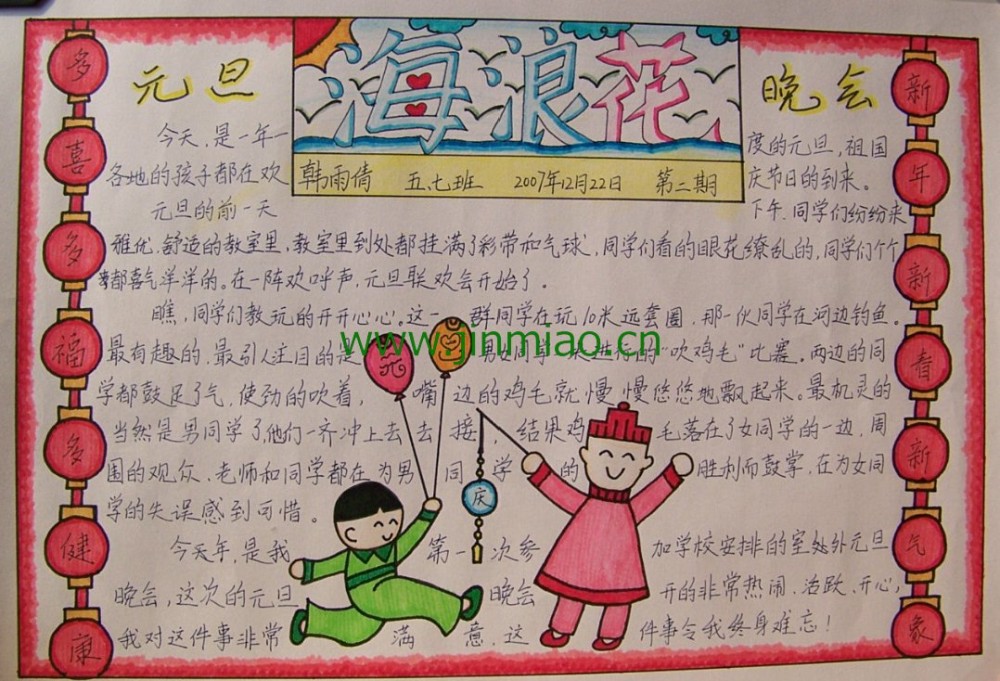 海浪花
韩雨倩 五.七班 2007年12月22日 第二期
元旦晚会
今天,是一年一度的元旦,祖国
各地的孩子都在欢庆节日的到来。
元旦的前一天下午,同学们纷纷来
雅优.舒适的教室里,教室里到处都挂满了彩带和气球,同学们看的眼花缭乱的,同学们个个
都喜气洋洋的。在一阵欢呼声,元旦联欢会开始了.
瞧,同学们教玩的开开心心。这一群同学在玩10米远套圈,那一伙同学在河边钓鱼。
最有趣的.最引人注目的是男女同学 进行的“吹鸡毛”比赛。两边的同
学都鼓足了气,使劲的吹着,嘴边的鸡毛就慢慢悠悠地飘起来。最机灵的
当然是男同学了,他们一齐冲上去去接,结果鸡毛落在了女同学的一边,周
围的观众、老师和同学都在为男同学的胜利而鼓掌,在为女同
学的失误感到可惜。
今天年,是我第一次参加学校安排的室处外元旦
晚会,这次的元旦晚会开的非常热闹.活跃.开心,
我对这件事非常满意.这件事令我终身难忘!
多喜多福多健康
新年新春新气象
庆
www.jinmiao.cn